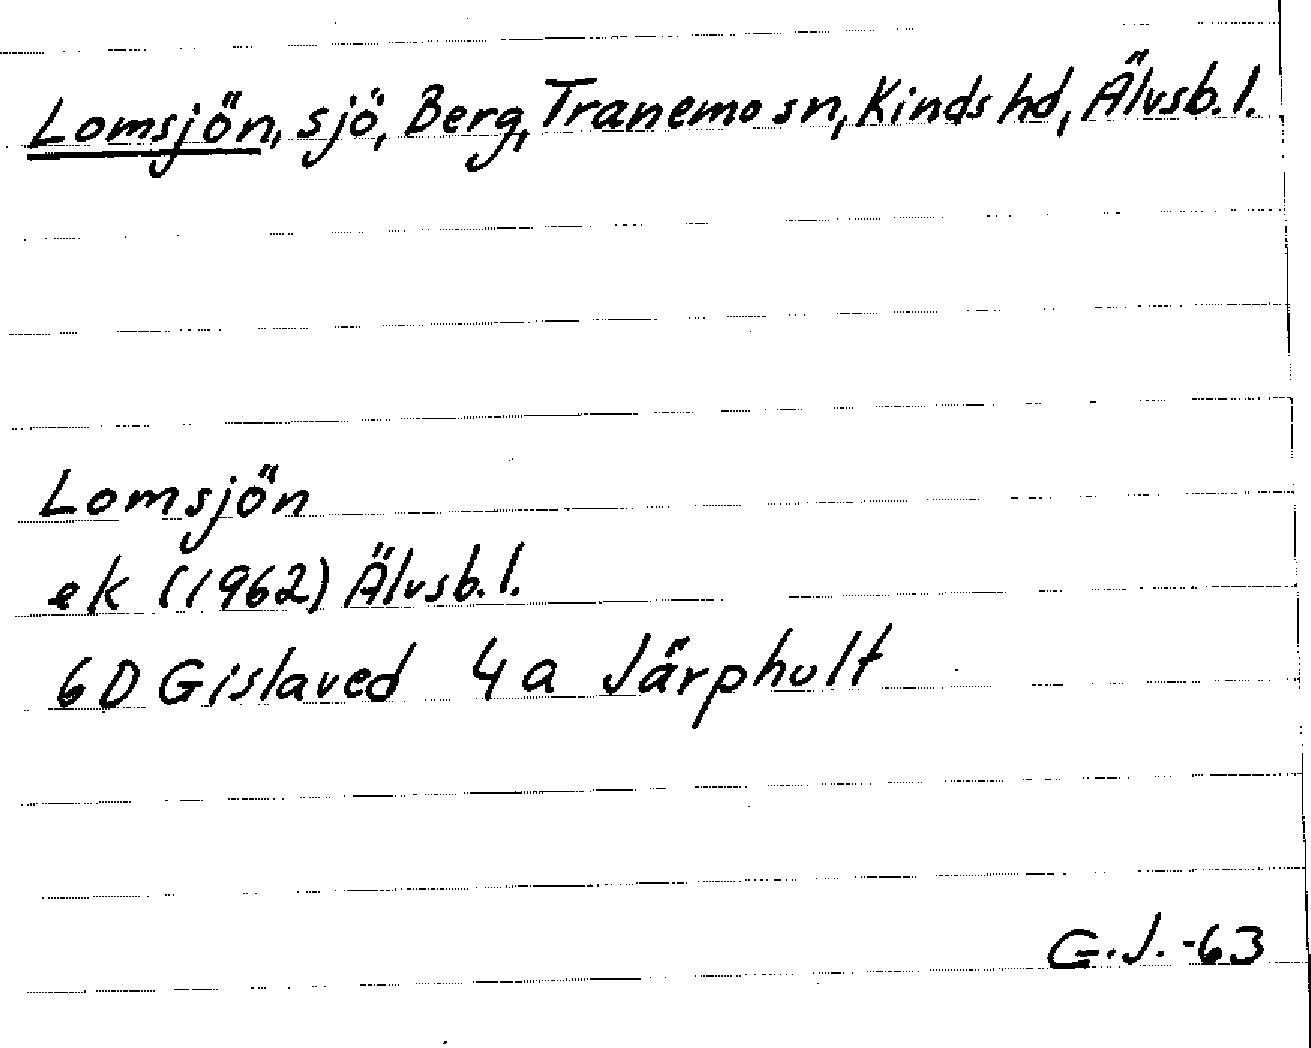 Lomsjön, sjö, Berg, Tranemo sn, Kinds hd, Älvsb. l.
Lomsjön
ek (1962) Älvsb. l.
6D Gislaved 4a Järphult
G.J. -63